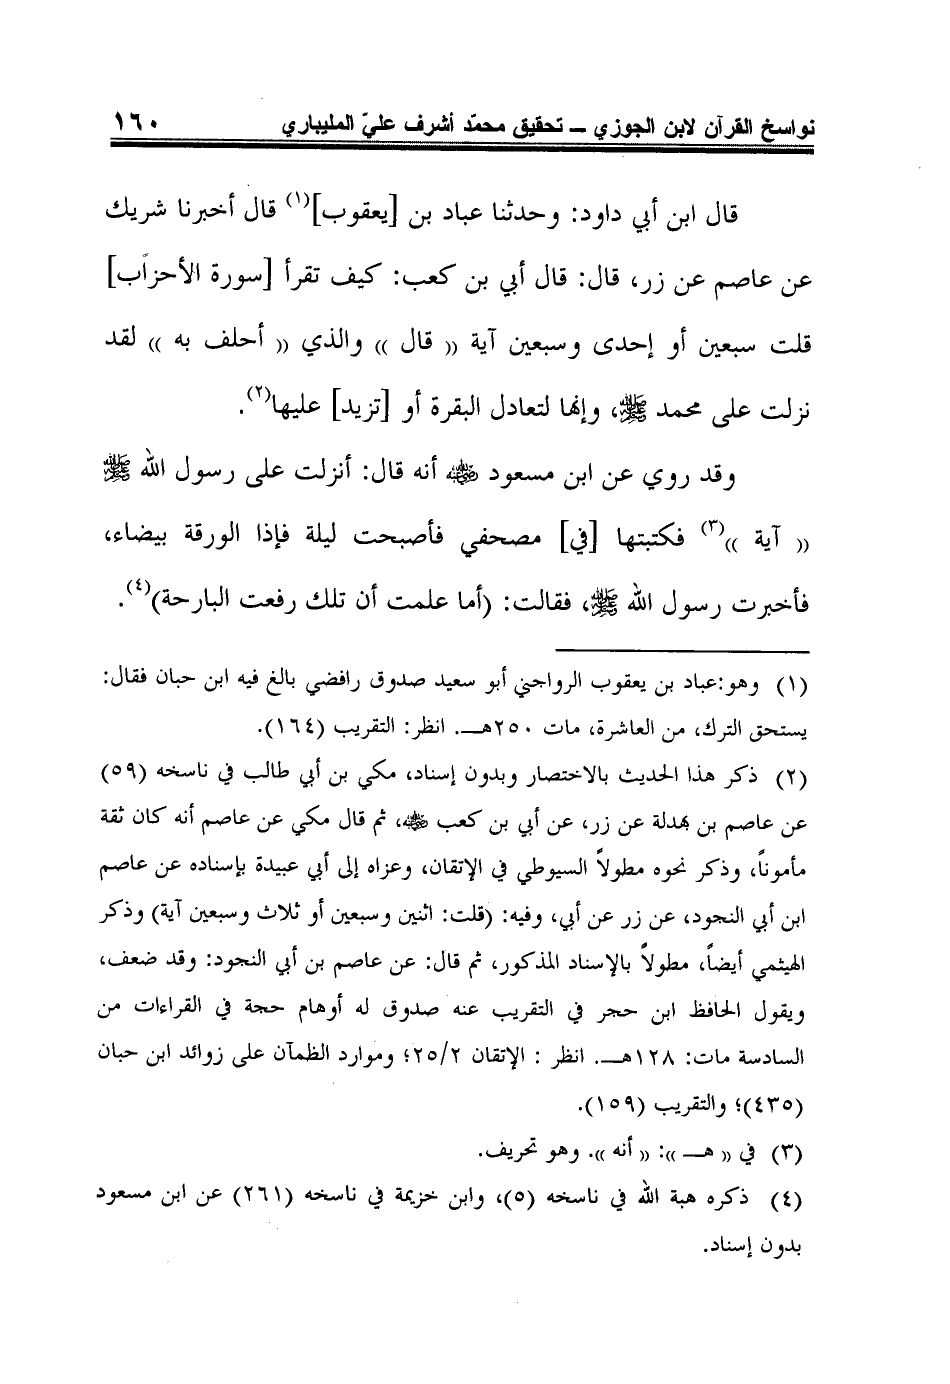 نواسخ القرآن لابن الجوزي – تحقيق محمّد أشرف عليّ المليباري ١٦٠
قال ابن أبي داود: وحدثنا عباد بن [يعقوب](١) قال أخبرنا شريك
عن عاصم عن زر، قال: قال أبي بن كعب: كيف تقرأ [سورة الأحزاب]
قلت سبعين أو إحدى وسبعين آية (( قال )) والذي (( أحلف به )) لقد
نزلت على محمد ﷺ، وإنها لتعادل البقرة أو [تزيد] عليها(٢).
وقد روي عن ابن مسعود ﷺ أنه قال: أنزلت على رسول الله ﷺ
(( آية ))(٣) فكتبتها [في] مصحفي فأصبحت ليلة فإذا الورقة بيضاء،
فأخبرت رسول الله ﷺ، فقالت: (أما علمت أن تلك رفعت البارحة)(٤).
(١) وهو:عباد بن يعقوب الرواجني أبو سعيد صدوق رافضي بالغ فيه ابن حبان فقال:
يستحق الترك، من العاشرة، مات ٢٥٠هـ. انظر: التقريب (١٦٤).
(٢) ذكر هذا الحديث بالاختصار وبدون إسناد، مكي بن أبي طالب في ناسخه (٥٩)
عن عاصم بن بهدلة عن زر، عن أبي بن كعب ﷺ، ثم قال مكي عن عاصم أنه كان ثقة
مأموناً، وذكر نحوه مطولاً السيوطي في الإتقان، وعزاه إلى أبي عبيدة بإسناده عن عاصم
ابن أبي النجود، عن زر عن أبي، وفيه: (قلت: اثنين وسبعين أو ثلاث وسبعين آية) وذكر
الهيثمي أيضاً، مطولاً بالإسناد المذكور، ثم قال: عن عاصم بن أبي النجود: وقد ضعف،
ويقول الحافظ ابن حجر في التقريب عنه صدوق له أوهام حجة في القراءات من
السادسة مات: ١٢٨هـ. انظر : الإتقان ٢٥/٢؛ وموارد الظمآن على زوائد ابن حبان
(٤٣٥)؛ والتقريب (١٥٩).
(٣) في (( هـ )): (( أنه )). وهو تحريف.
(٤) ذكره هبة الله في ناسخه (٥)، وابن خزيمة في ناسخه (٢٦١) عن ابن مسعود
بدون إسناد.